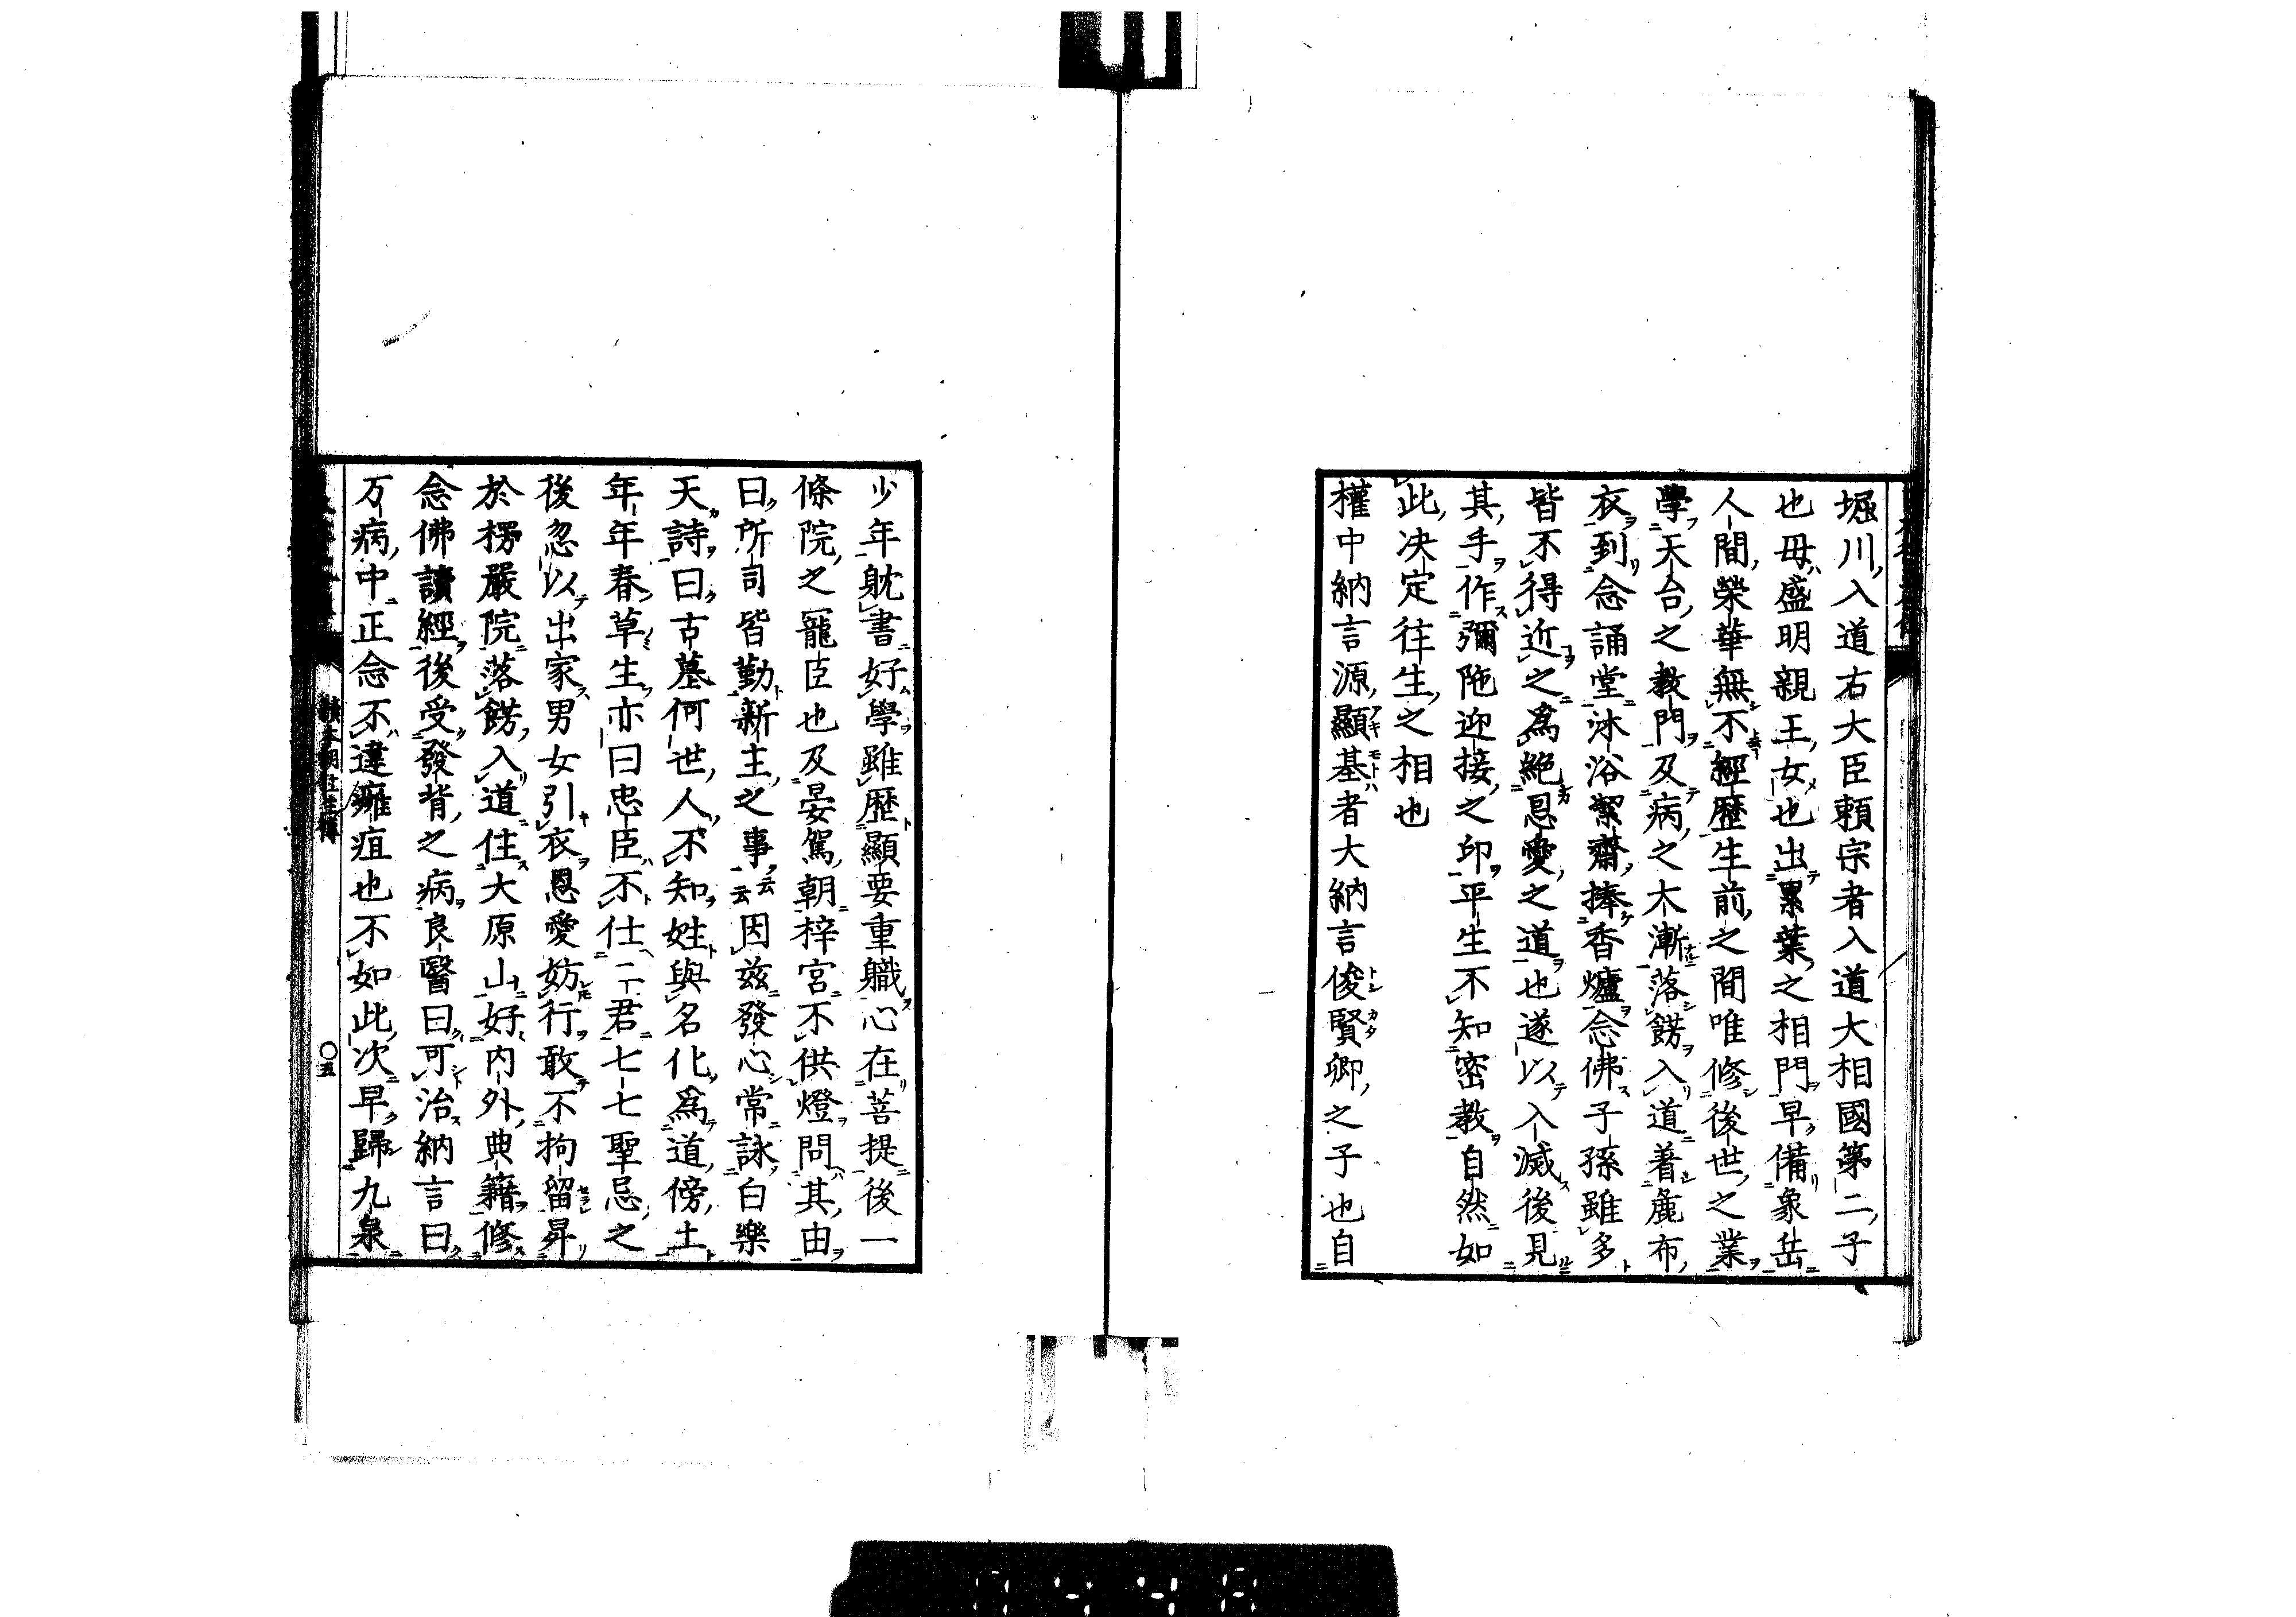 堀川入道右大臣頼宗者入道大相國第二子
也母盛明親王女也出累葉之相門早備象岳
人間榮華無不經歷生前之間唯修後世之業
學天台之教門及病之大漸落餝入道着麁布
衣到念誦堂沐浴絜齋捧香爐念佛子孫雖多
皆不得近之爲絕恩愛之道也遂以入滅後見
其手作彌陁迎接之印平生不知密教自然如
此决定往生之相也
權中納言源顯基者大納言俊賢卿之子也自
少年躭書好學雖歷顯要重軄心在菩提後一
條院之寵臣也及晏駕朝梓宮不供燈問其由
曰所司皆勤新主之事云云因兹發心常詠白樂
天詩曰古墓何世人不知姓與名化爲道傍土
年年春草生亦曰忠臣不仕二君七七聖忌之
後忽以出家男女引衣恩愛妨行敢不拘留昇
於楞嚴院落餝入道住大原山好內外典籍修
念佛讀經後受發背之病良醫曰可治納言曰
万病中正念不違癰疽也不如此次早歸九泉
續本朝往生傳
〇五